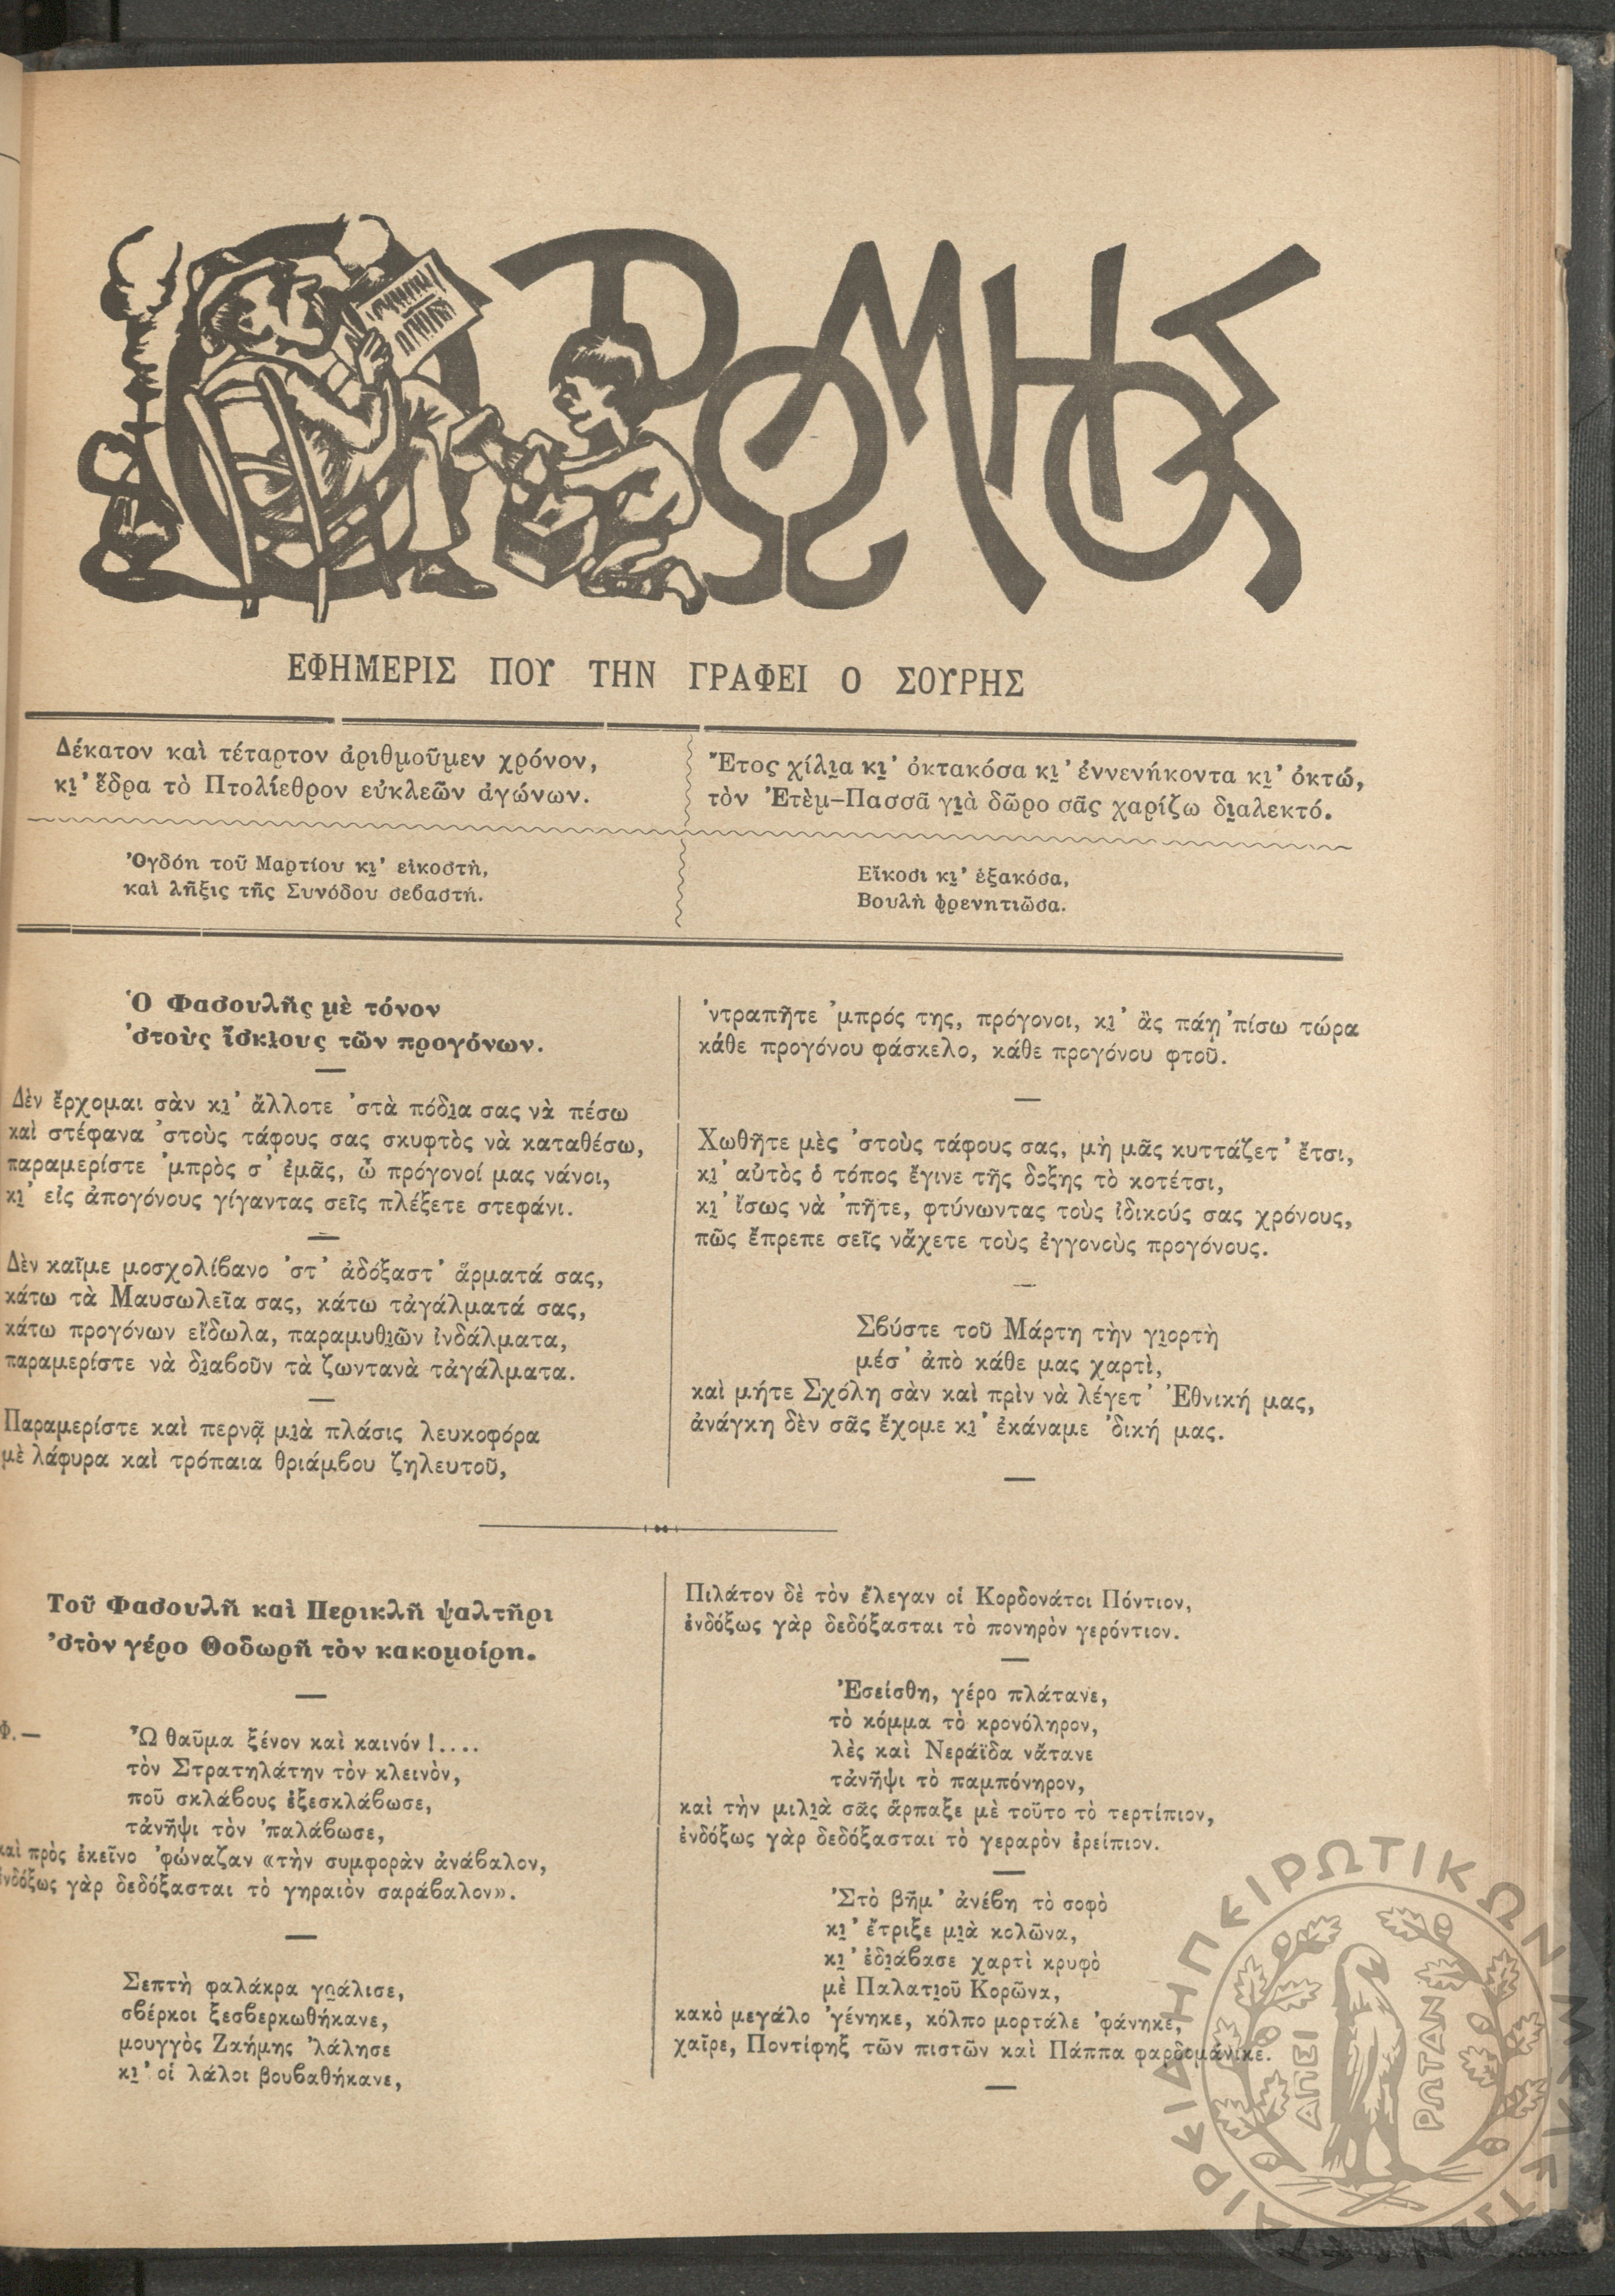 Ο ΡΩΜΗΟΣ
ΕΦΗΜΕΡΙΣ ΠΟΥ ΤΗΝ ΓΡΑΦΕΙ Ο ΣΟΥΡΗΣ
Δέκατον καὶ τέταρτον ἀριθμοῦμεν χρόνον,
κι̯’ ἕδρα τὸ Πτολίεθρον εὐκλεῶν ἀγώνων.
Ἔτος χίλι̯α κι̯’ ὀκτακόσα κι̯’ ἐννενήκοντα κι̯’ ὀκτώ,
τὸν Ἐτὲμ–Πασσᾶ γι̯ὰ δῶρο σᾶς χαρίζω δι̯αλεκτό.
Ὀγδόη τοῦ Μαρτίου κι̯’ εἰκοστὴ,
καὶ λῆξις τῆς Συνόδου σεβαστή.
Εἴκοσι κι̯’ ἑξακόσα,
Βουλὴ φρενητιῶσα.
Ὁ Φασουλῆς μὲ τόνον
’στοὺς ἴσκι̯ους τῶν προγόνων.
Δὲν ἔρχομαι σὰν κι̯’ ἄλλοτε ’στὰ πόδι̯α σας νὰ πέσω
καὶ στέφανα ’στοὺς τάφους σας σκυφτὸς νὰ καταθέσω,
παραμερίστε ’μπρὸς σ’ ἐμᾶς, ὦ πρόγονοί μας νάνοι,
κι̯’ εἰς ἀπογόνους γίγαντας σεῖς πλέξετε στεφάνι.
Δὲν καῖμε μοσχολίβανο ’στ’ ἀδόξαστ’ ἅρματά σας,
κάτω τὰ Μαυσωλεῖα σας, κάτω τἀγάλματά σας,
κάτω προγόνων εἴδωλα, παραμυθι̯ῶν ἰνδάλματα,
παραμερίστε νὰ δι̯αβοῦν τὰ ζωντανὰ τἀγάλματα.
Παραμερίστε καὶ περνᾷ μι̯ὰ πλάσις λευκοφόρα
μὲ λάφυρα καὶ τρόπαια θριάμβου ζηλευτοῦ,
’ντραπῆτε ’μπρός της, πρόγονοι, κι̯’ ἂς πάῃ ’πίσω τώρα
κάθε προγόνου φάσκελο, κάθε προγόνου φτοῦ.
Χωθῆτε μὲς ’στοὺς τάφους σας, μὴ μᾶς κυττάζετ’ ἔτσι,
κι̯’ αὐτὸς ὁ τόπος ἔγινε τῆς δοξης τὸ κοτέτσι,
κι̯’ ἴσως νὰ ’πῆτε, φτύνωντας τοὺς ἰδικούς σας χρόνους,
πῶς ἔπρεπε σεῖς νἄχετε τοὺς ἐγγονοὺς προγόνους.
Σβύστε τοῦ Μάρτη τὴν γι̯ορτὴ
μέσ’ ἀπὸ κάθε μας χαρτὶ,
καὶ μήτε Σχόλη σὰν καὶ πρὶν νὰ λέγετ’ Ἐθνική μας,
ἀνάγκη δὲν σᾶς ἔχομε κι̯’ ἐκάναμε ’δική μας.
Τοῦ Φασουλῆ καὶ Περικλῆ ψαλτῆρι
’στὸν γέρο Θοδωρῆ τὸν κακομοίρη.
Φ.— Ὢ θαῦμα ξένον καὶ καινόν!....
τὸν Στρατηλάτην τὸν κλεινὸν,
ποῦ σκλάβους ἐξεσκλάβωσε,
τἀνῆψι τὸν ’παλάβωσε,
καὶ πρὸς ἐκεῖνο ’φώναζαν «τὴν συμφορὰν ἀνάβαλον,
ἐνδόξως γὰρ δεδόξασται τὸ γηραιὸν σαράβαλον».
Σεπτὴ φαλάκρα γυ̯άλισε,
σβέρκοι ξεσβερκωθήκανε,
μουγγὸς Ζαήμης ’λάλησε
κι̯’ οἱ λάλοι βουβαθήκανε,
Πιλάτον δὲ τὸν ἔλεγαν οἱ Κορδονάτοι Πόντιον,
ἐνδόξως γὰρ δεδόξασται τὸ πονηρὸν γερόντιον.
Ἐσείσθη, γέρο πλάτανε,
τὸ κόμμα τὸ κρονόληρον,
λὲς καὶ Νεράϊδα νἄτανε
τἀνῆψι τὸ παμπόνηρον,
καὶ τὴν μιλι̯ὰ σᾶς ἅρπαξε μὲ τοῦτο τὸ τερτίπιον,
ἐνδόξως γὰρ δεδόξασται τὸ γεραρὸν ἐρείπιον.
’Στὸ βῆμ’ ἀνέβη τὸ σοφὸ
κι̯’ ἔτριξε μι̯ὰ κολῶνα,
κι̯’ ἐδι̯άβασε χαρτὶ κρυφὸ
μὲ Παλατι̯οῦ Κορῶνα,
κακὸ μεγάλο ’γένηκε, κόλπο μορτάλε ’φάνηκε,
χαῖρε, Ποντίφηξ τῶν πιστῶν καὶ Πάππα φαρδομάνικε.
ΕΤΑΙΡΕΙΑ ΗΠΕΙΡΩΤΙΚΩΝ ΜΕΛΕΤΩΝ
ΑΠΕΙ
ΡΩΤΑΝ